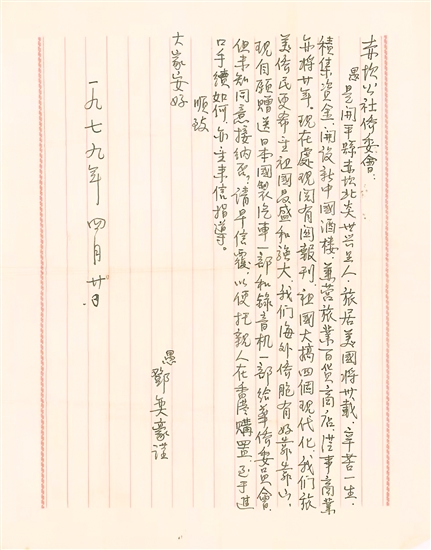 赤坎公社侨委會：
愚是開平縣赤坎北炎世兴里人，旅居美國將卅載，辛苦一生，
積集資金，開設新中國酒楼，兼营旅業百貨商店，從事商業
亦將廿年。现在處观阅有関報刊，祖國大搞四個现代化，我们旅
美侨民更希主祖國昌盛和強大，我们海外侨胞有好靠靠山，
现自願贈送日本國製汽車一部和錄音机一部給華侨委員會，
但未知同意接納否，請早信覆，以便托親人在香港購置，至于進
口手續如何，亦主来信指導。
順致
大家安好
愚 鄧奕豪谨
一九七九年四月廿日．